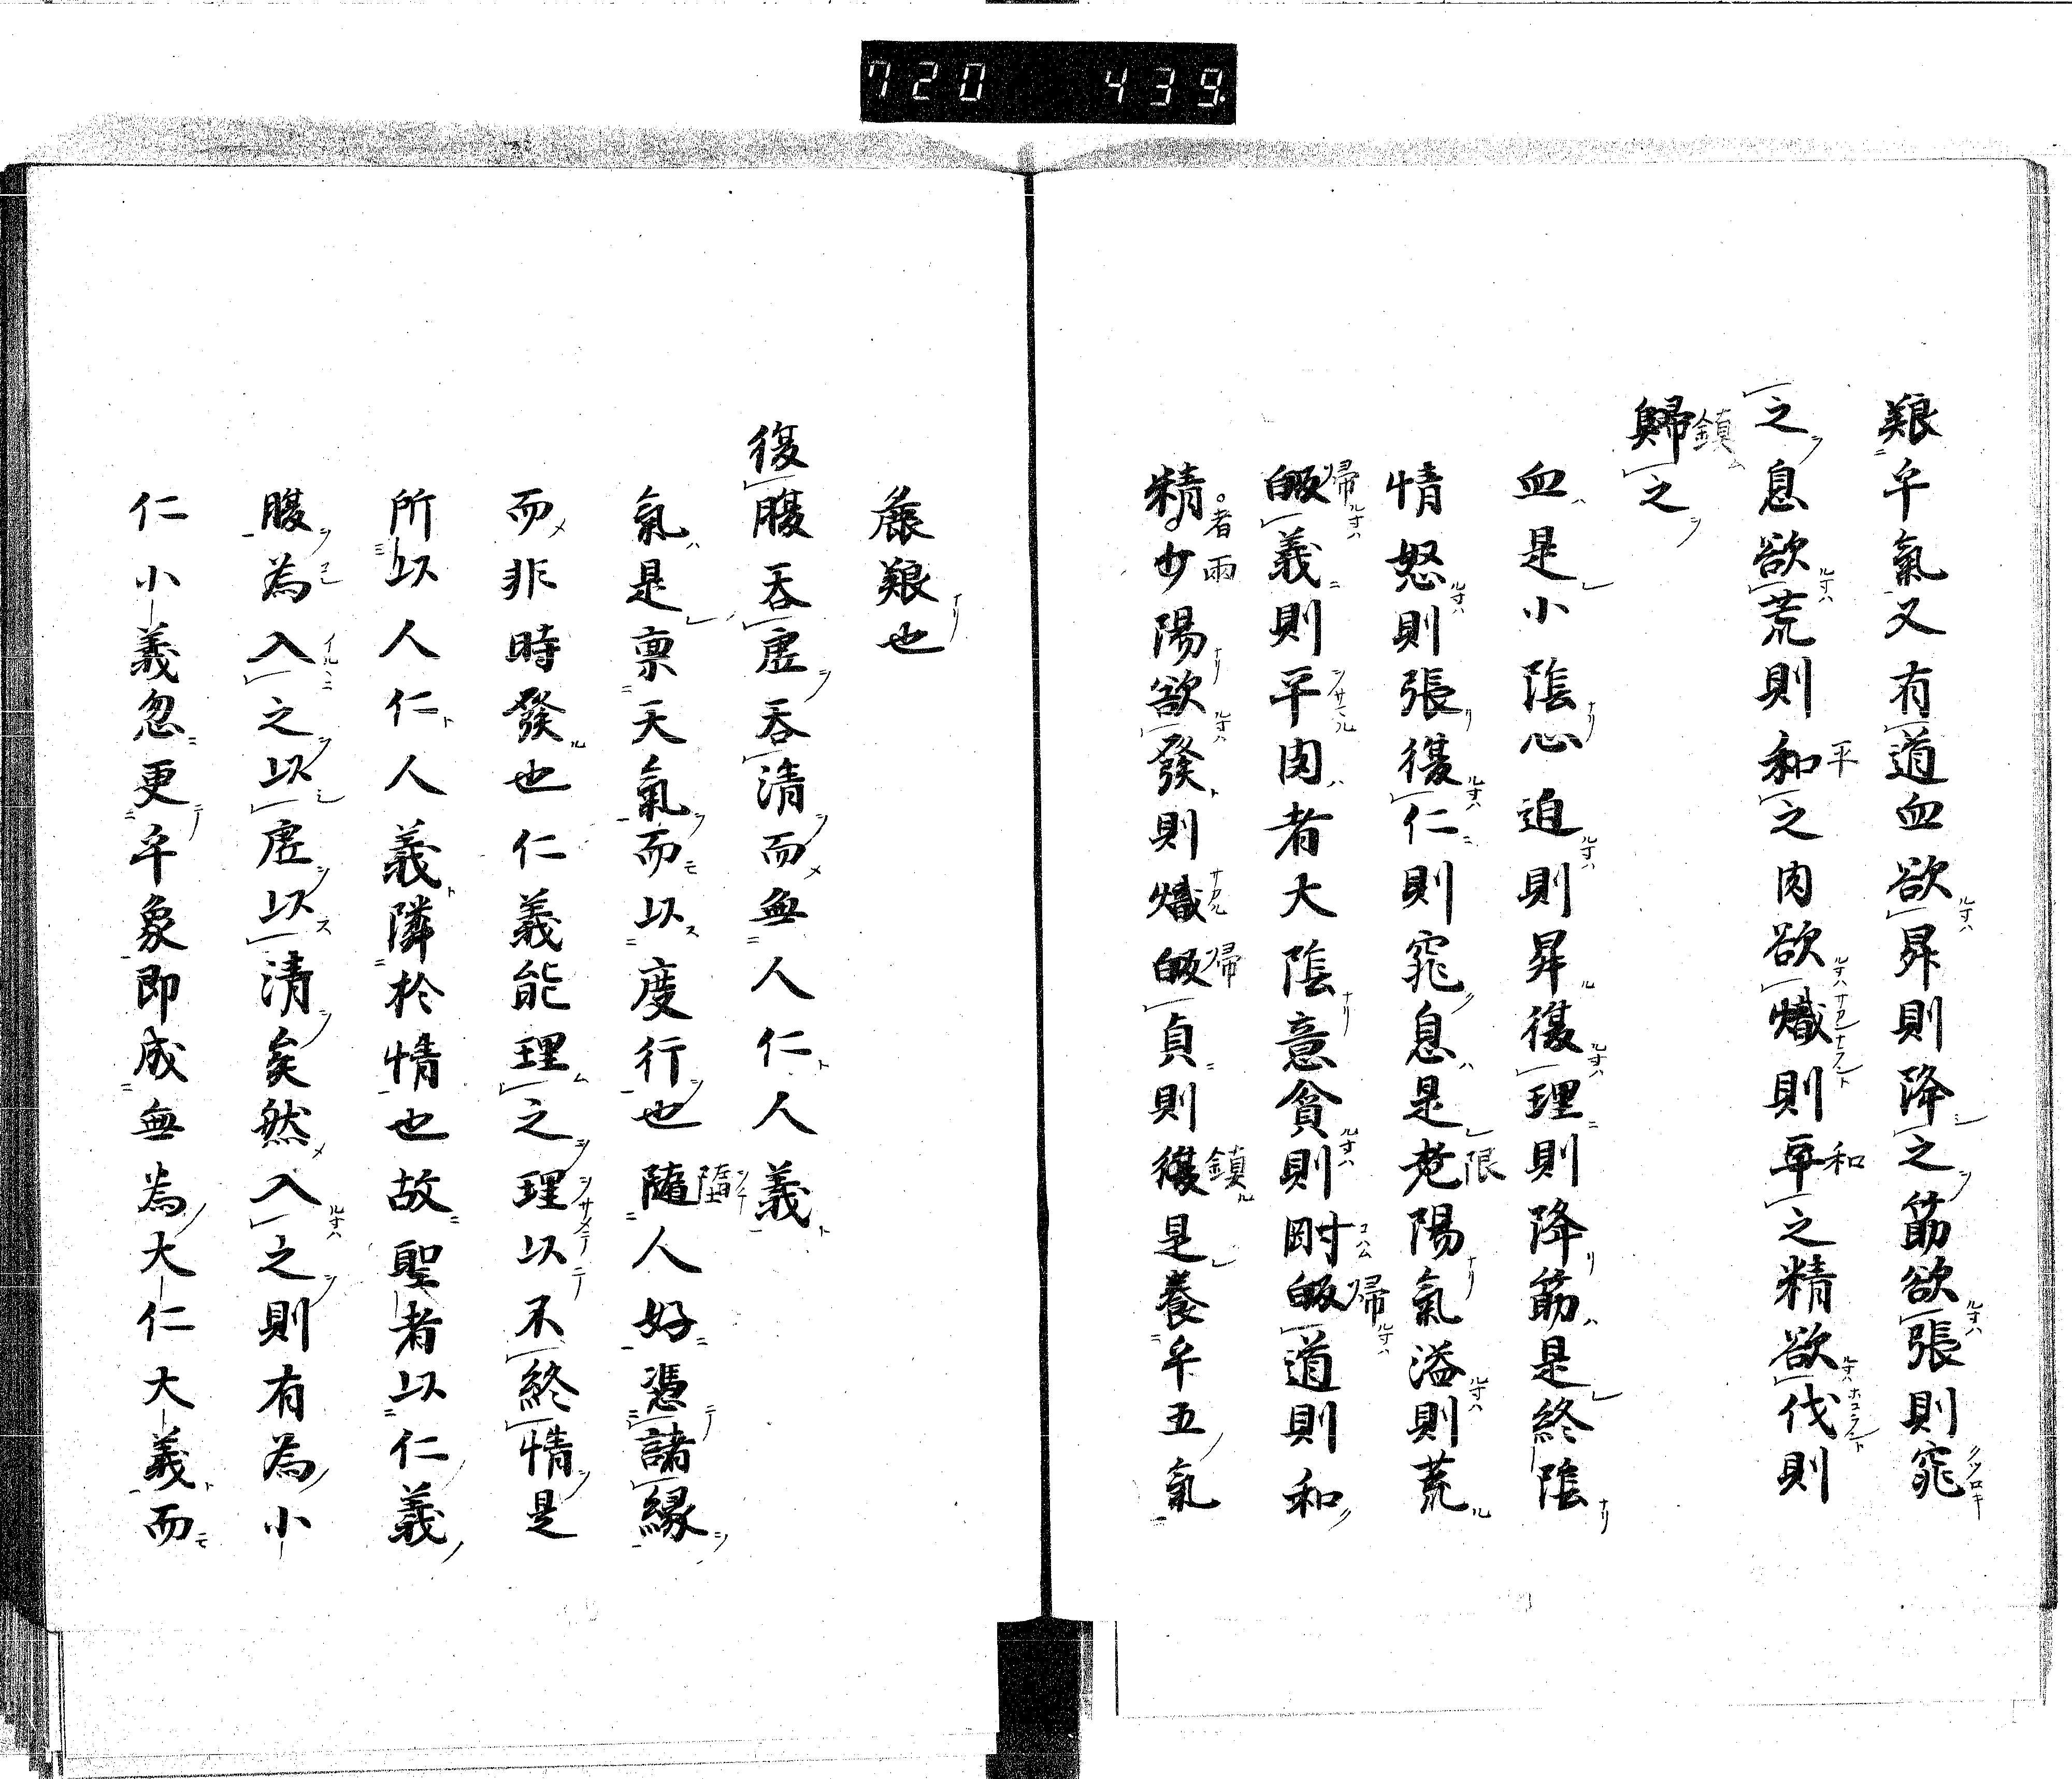 720 439
艱乎氣又有道血欲昇則降之筋欲張則窕
之息欲荒則和之肉欲熾則平之精欲伐則
歸之
血是小陰心迫則昇復理則降筋是終陰
情怒則張復仁則窕息是老陽氣溢則荒
皈義則平肉者大陰意貪則剛皈道則和
精少陽欲發則熾皈貞則復是養乎五氣
麤艱也
復腹吞虛吞清而無人仁人義
氣是稟天氣而以度行也隨人好憑諸緣
而非時發也仁義能理之理以不終情是
所以人仁人義隣於情也故聖者以仁義
腹為入之以虛以清矣然入之則有為小
仁小義忽更乎象即成無為大仁大義而